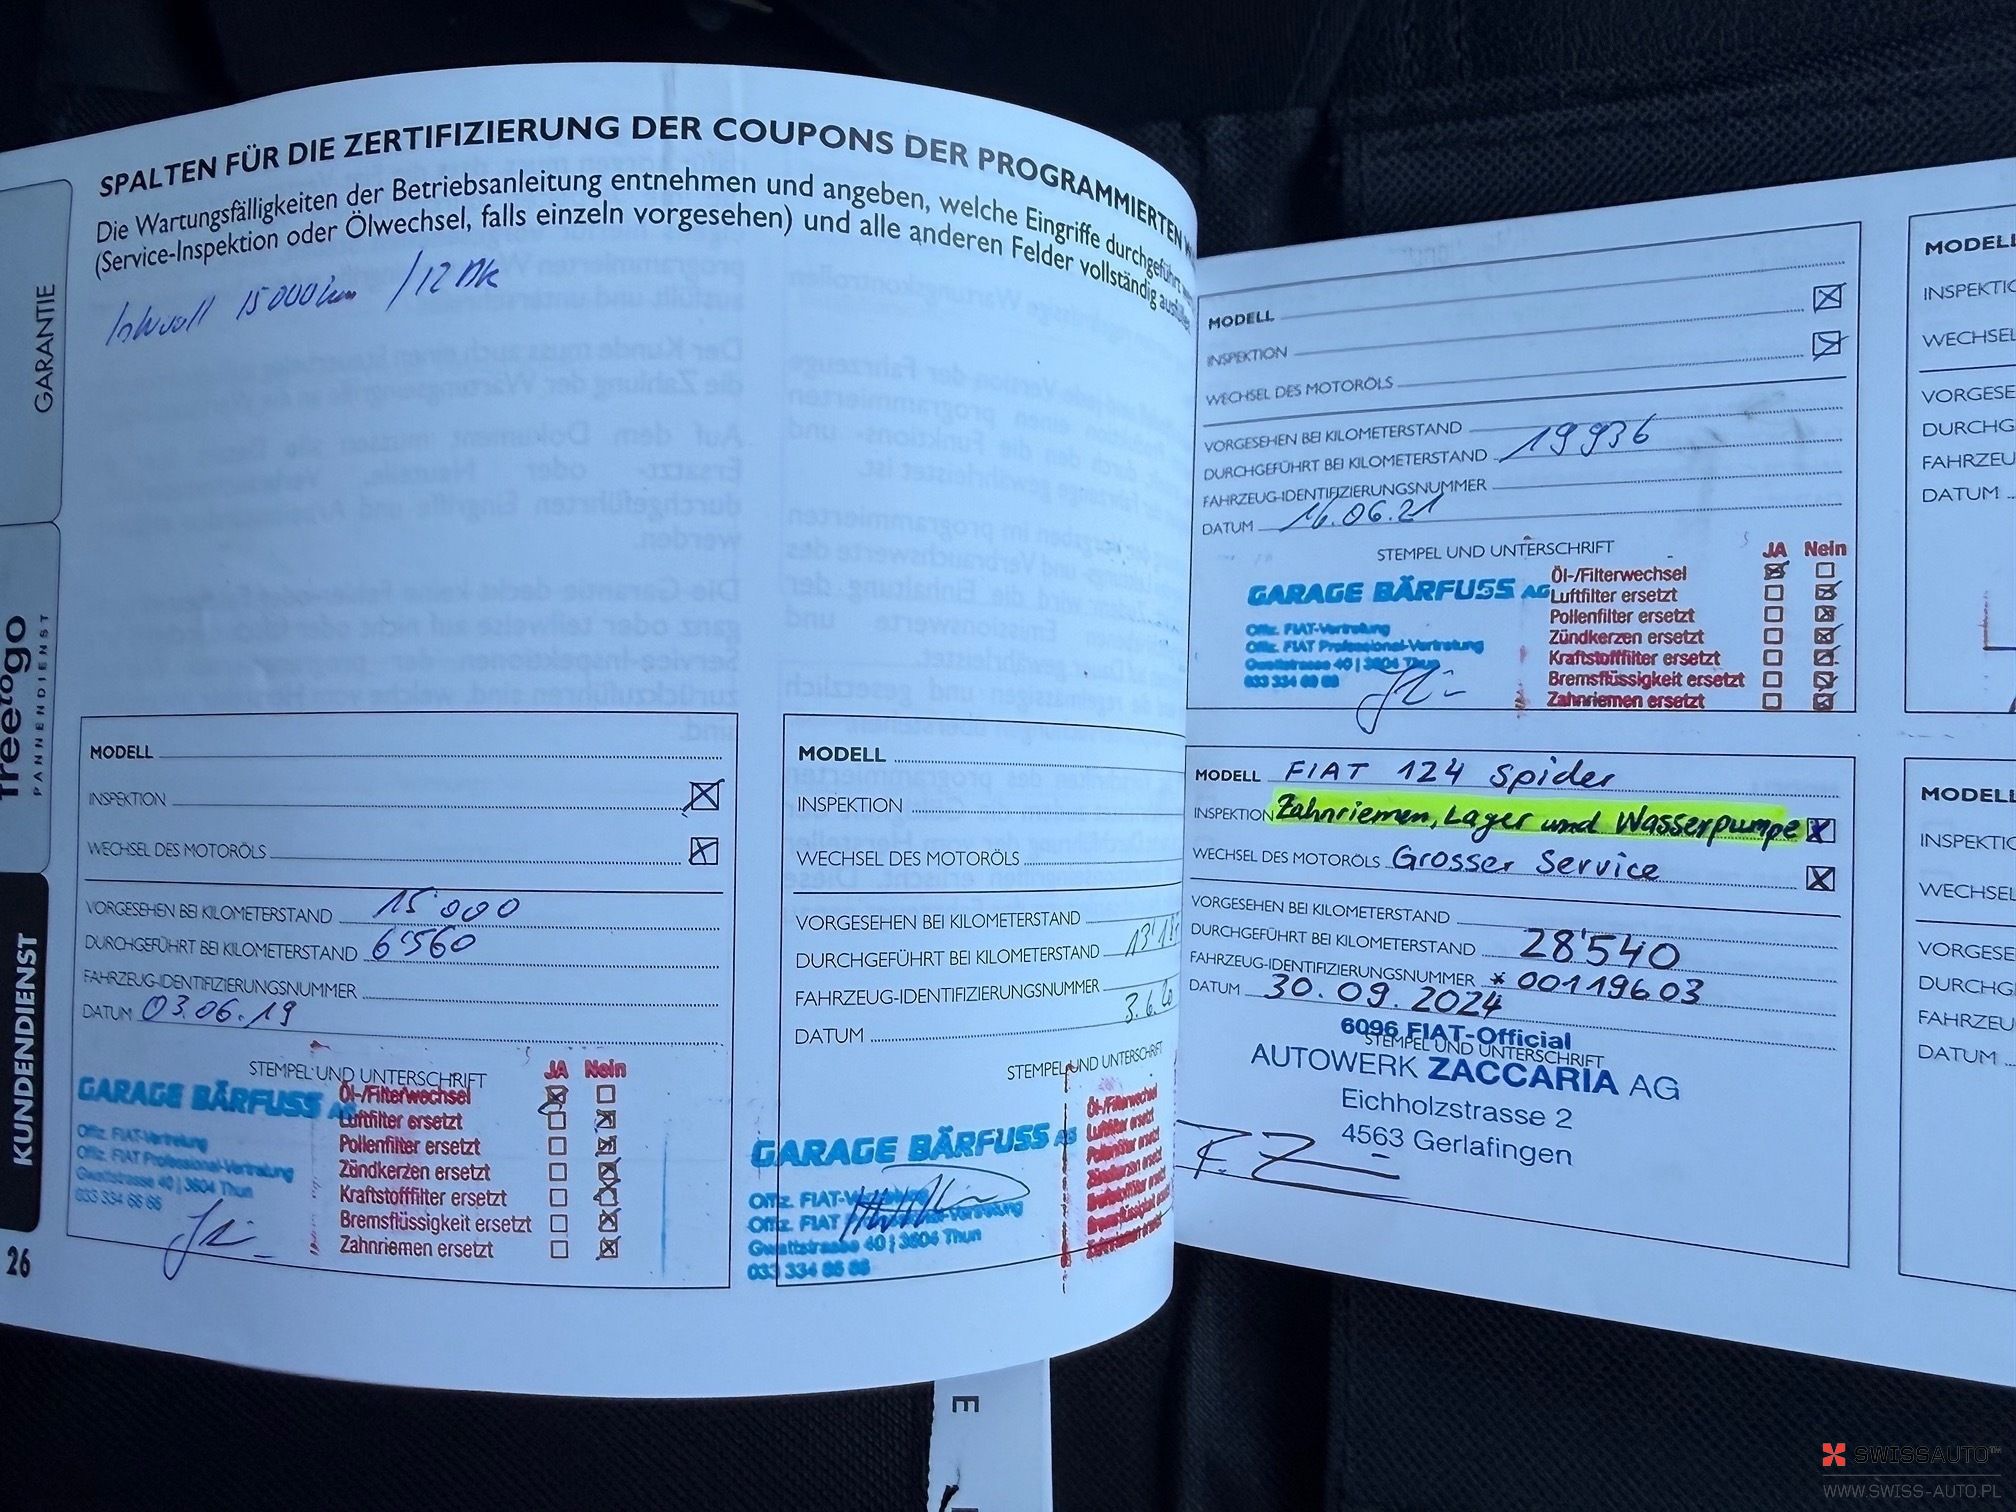 SPALTEN FÜR DIE ZERTIFIZIERUNG DER COUPONS DER PROGRAMMIERTEN
Die Wartungsfälligkeiten der Betriebsanleitung entnehmen und angeben, welche Eingriffe durchgeführt
(Service-Inspektion oder Ölwechsel, falls einzeln vorgesehen) und alle anderen Felder vollständig
15000km /12
GARANTIE
PANNENDIENST
KUNDENDIENST
26
MODELL
INSPEKTION
WECHSEL DES MOTORÖLS
VORGESEHEN BEI KILOMETERSTAND 15'000
DURCHGEFÜHRT BEI KILOMETERSTAND 6'560
FAHRZEUG-IDENTIFIZIERUNGSNUMMER
DATUM 03.06.19
STEMPEL UND UNTERSCHRIFT
JA Nein
GARAGE BÄRFUSS AG
Offiz. FIAT-Vertretung
Offiz. FIAT Professional-Vertretung
Gwattstrasse 40 | 3604 Thun
033 334 66 66
Öl-/Filterwechsel
Luftfilter ersetzt
Pollenfilter ersetzt
Zündkerzen ersetzt
Kraftstofffilter ersetzt
Bremsflüssigkeit ersetzt
Zahnriemen ersetzt
MODELL
INSPEKTION
WECHSEL DES MOTORÖLS
VORGESEHEN BEI KILOMETERSTAND
DURCHGEFÜHRT BEI KILOMETERSTAND
FAHRZEUG-IDENTIFIZIERUNGSNUMMER
DATUM 3.6.20
STEMPEL UND UNTERSCHRIFT
GARAGE BÄRFUSS AG
Offiz. FIAT-Vertretung
Offiz. FIAT Professional-Vertretung
Gwattstrasse 40 | 3604 Thun
033 334 66 66
Öl-/Filterwechsel
Luftfilter ersetzt
Pollenfilter ersetzt
Zündkerzen ersetzt
Kraftstofffilter ersetzt
Bremsflüssigkeit ersetzt
Zahnriemen ersetzt
MODELL
INSPEKTION
WECHSEL DES MOTORÖLS
VORGESEHEN BEI KILOMETERSTAND
DURCHGEFÜHRT BEI KILOMETERSTAND 19936
FAHRZEUG-IDENTIFIZIERUNGSNUMMER
DATUM 16.06.21
STEMPEL UND UNTERSCHRIFT
JA Nein
GARAGE BÄRFUSS AG
Offiz. FIAT-Vertretung
Offiz. FIAT Professional-Vertretung
Gwattstrasse 40 | 3604 Thun
033 334 66 66
Öl-/Filterwechsel
Luftfilter ersetzt
Pollenfilter ersetzt
Zündkerzen ersetzt
Kraftstofffilter ersetzt
Bremsflüssigkeit ersetzt
Zahnriemen ersetzt
MODELL FIAT 124 Spider
INSPEKTION Zahnriemen, Lager und Wasserpumpe
WECHSEL DES MOTORÖLS Grosser Service
VORGESEHEN BEI KILOMETERSTAND
DURCHGEFÜHRT BEI KILOMETERSTAND 28'540
FAHRZEUG-IDENTIFIZIERUNGSNUMMER *00119603
DATUM 30.09.2024
STEMPEL UND UNTERSCHRIFT
6096 FIAT-Official
AUTOWERK ZACCARIA AG
Eichholzstrasse 2
4563 Gerlafingen
MODELL
INSPEKTIO
WECHSEL
VORGESE
DURCHG
FAHRZEU
DATUM
MODELL
INSPEKTIO
WECHSEL
VORGESE
DURCHG
FAHRZEU
DATUM
E
SWISSAUTO
WWW.SWISS-AUTO.PL